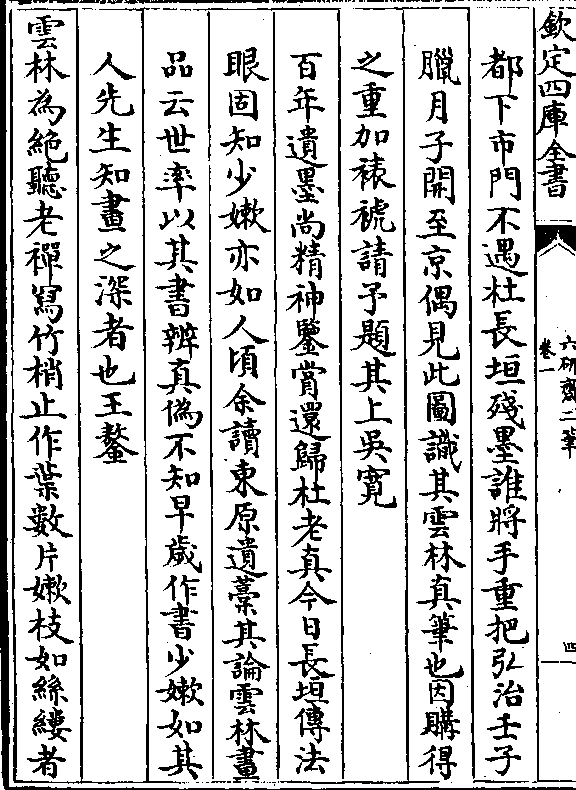 欽定四庫全書
六硏齋二筆
卷一
四
都下市門不遇杜長垣殘墨誰將手重把弘治壬子
臘月子開至京偶見此圖識其雲林真筆也因購得
之重加裱褫請予題其上吳寛
百年遺墨尚精神鑒賞還歸杜老真今日長垣傳法
眼固知少嫰亦如人頃余讀東原遺藁其論雲林畫
品云世率以其書辨真僞不知早歳作書少嫰如其
人先生知畫之深者也王鏊
雲林為絶聽老禪寫竹梢止作葉數片嫰枝如絲縷者